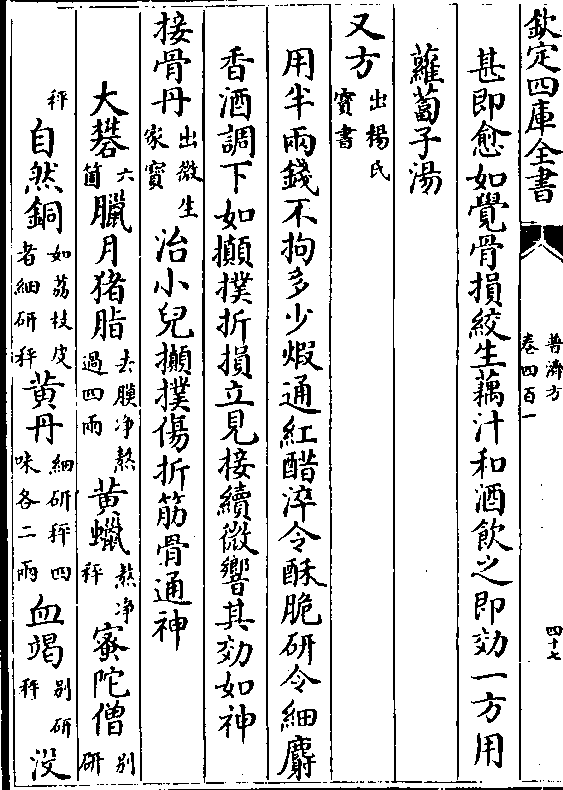 欽定四庫全書
普濟方
卷四百一
四十七
甚即愈如覺骨損絞生藕汁和酒飲之即効一方用
蘿蔔子湯
又方出楊氏寳書
用半兩錢不拘多少煆通紅醋淬令酥脆研令細麝
香酒調下如攧撲折損立見接續微響其効如神
接骨丹出微生家寳治小兒攧撲傷折筋骨通神
大礬六箇臘月猪脂去膜净熬過四兩黄蠟熬净秤蜜陀僧别研
秤自然銅如荔枝皮者細研秤黄丹細研秤四味各二兩血竭别研秤没